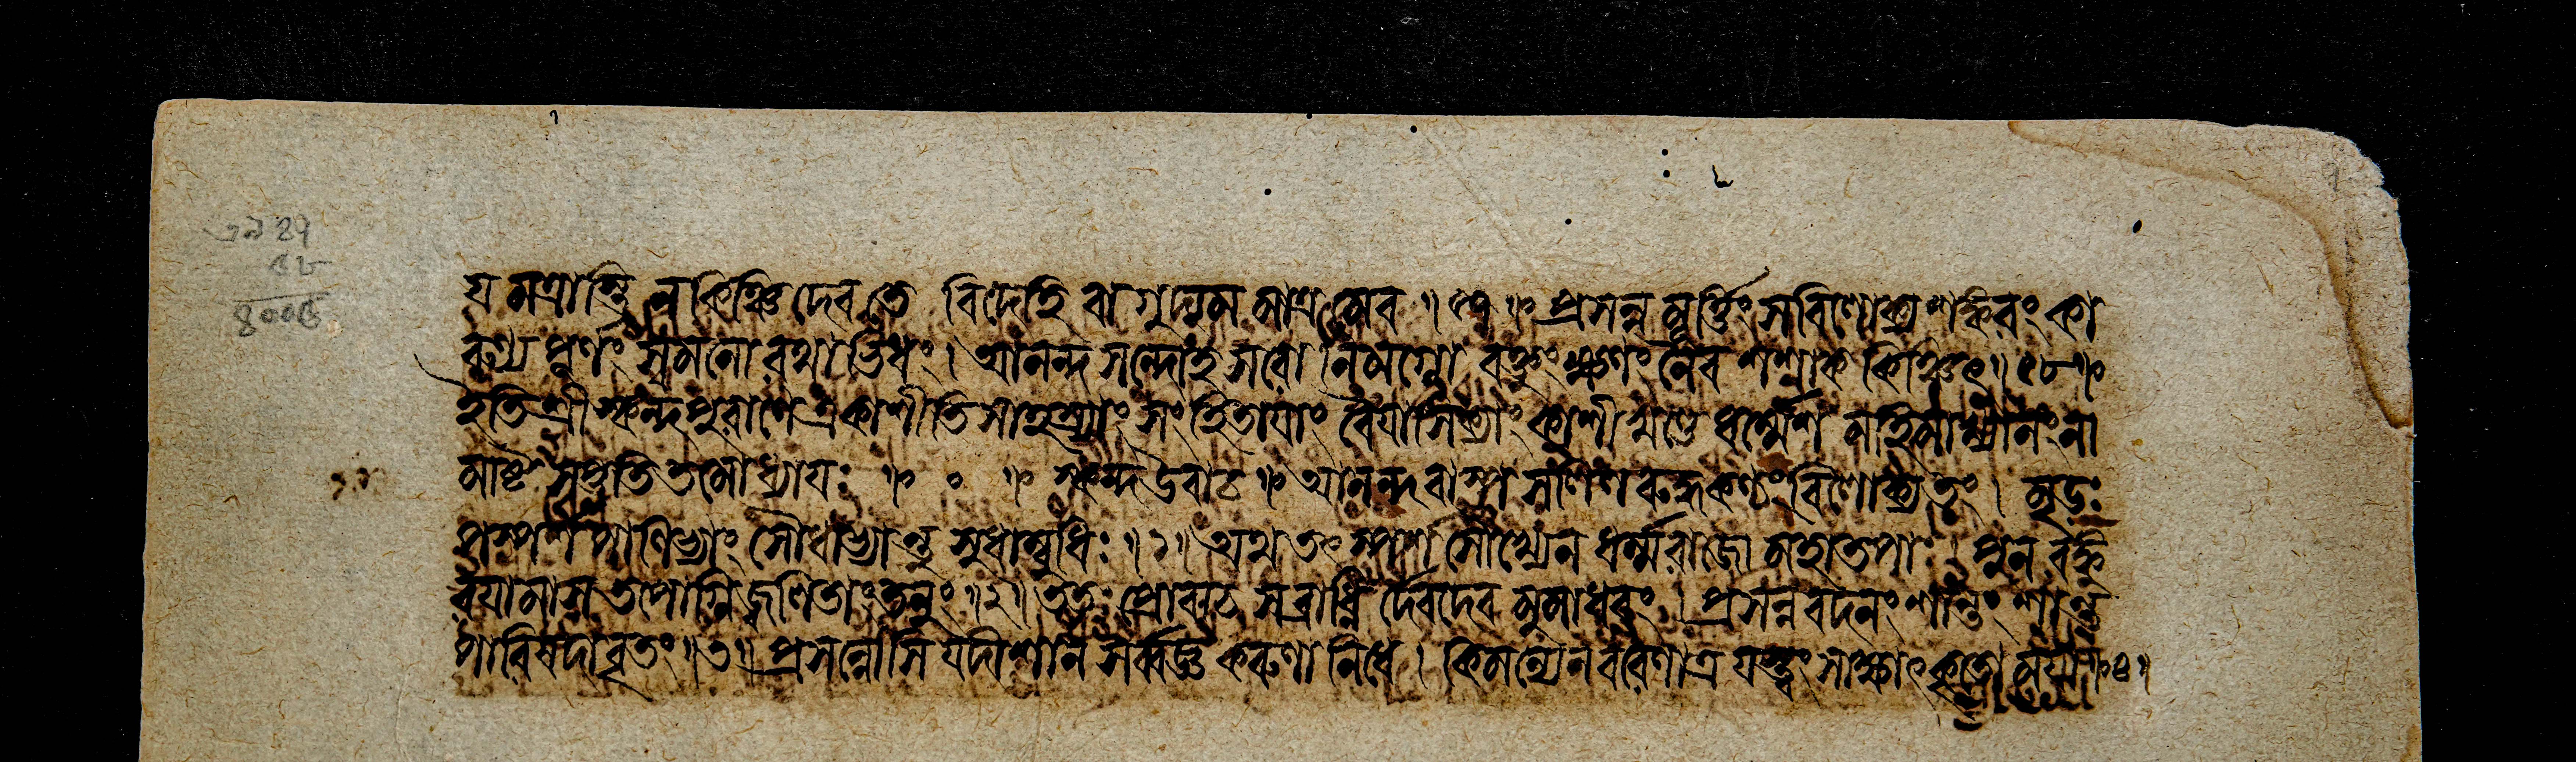 যমত্রাস্তি ন কিঞ্চিদেব তে বিদেহি বাগুদ্যম মাত্রমেব ॥ ৫৭ ॥ প্রসন্নমূর্ত্তিং স বিলোক্য শঙ্করং কা
রুণ্যপূর্ণং স্বমনোরথাভিধং । আনন্দসন্দোহসরো নিমগ্নো বক্তুং ক্ষণং নৈব শশাক কিঞ্চিৎ ॥ ৫৮ ॥
ইতি শ্রীস্কন্দপুরাণে একাশীতি সাহস্র্যাং সংহিতায়াং বৈয়াসিক্যাং কাশীখণ্ডে ধর্ম্মেশ মহিমাখ্যানং না
মাষ্টসপ্ততিতমোধ্যায়ঃ ॥ ০ ॥ স্কন্দ উবাচ ॥ আনন্দবাষ্প সলিল রুদ্ধকণ্ঠং বিলোক্য তং । মৃডঃ
পস্পর্শ পাণিভ্যাং সৌধাভ্যান্তু সুধাম্বুধিঃ ॥ ১ ॥ অথ তৎস্পর্শসৌখ্যেন ধর্ম্মরাজো মহাতপাঃ । পুনরঙ্কু
রয়ামাস তপোগ্নিজ্বলিতাং তনুং ॥ ২ ॥ ততঃ প্রোবাচ স ব্রাধ্নি র্দেবদেবমুমাধবং । প্রসন্নবদনং শান্তং শান্ত
পারিষদাবৃতং ॥ ৩ ॥ প্রসন্নোসি যদীশান সর্ব্বজ্ঞ করুণানিধে । কিমন্যেন বরেণাত্র যত্ত্বং সাক্ষাৎকৃতো ময়া ॥ ৪ ॥